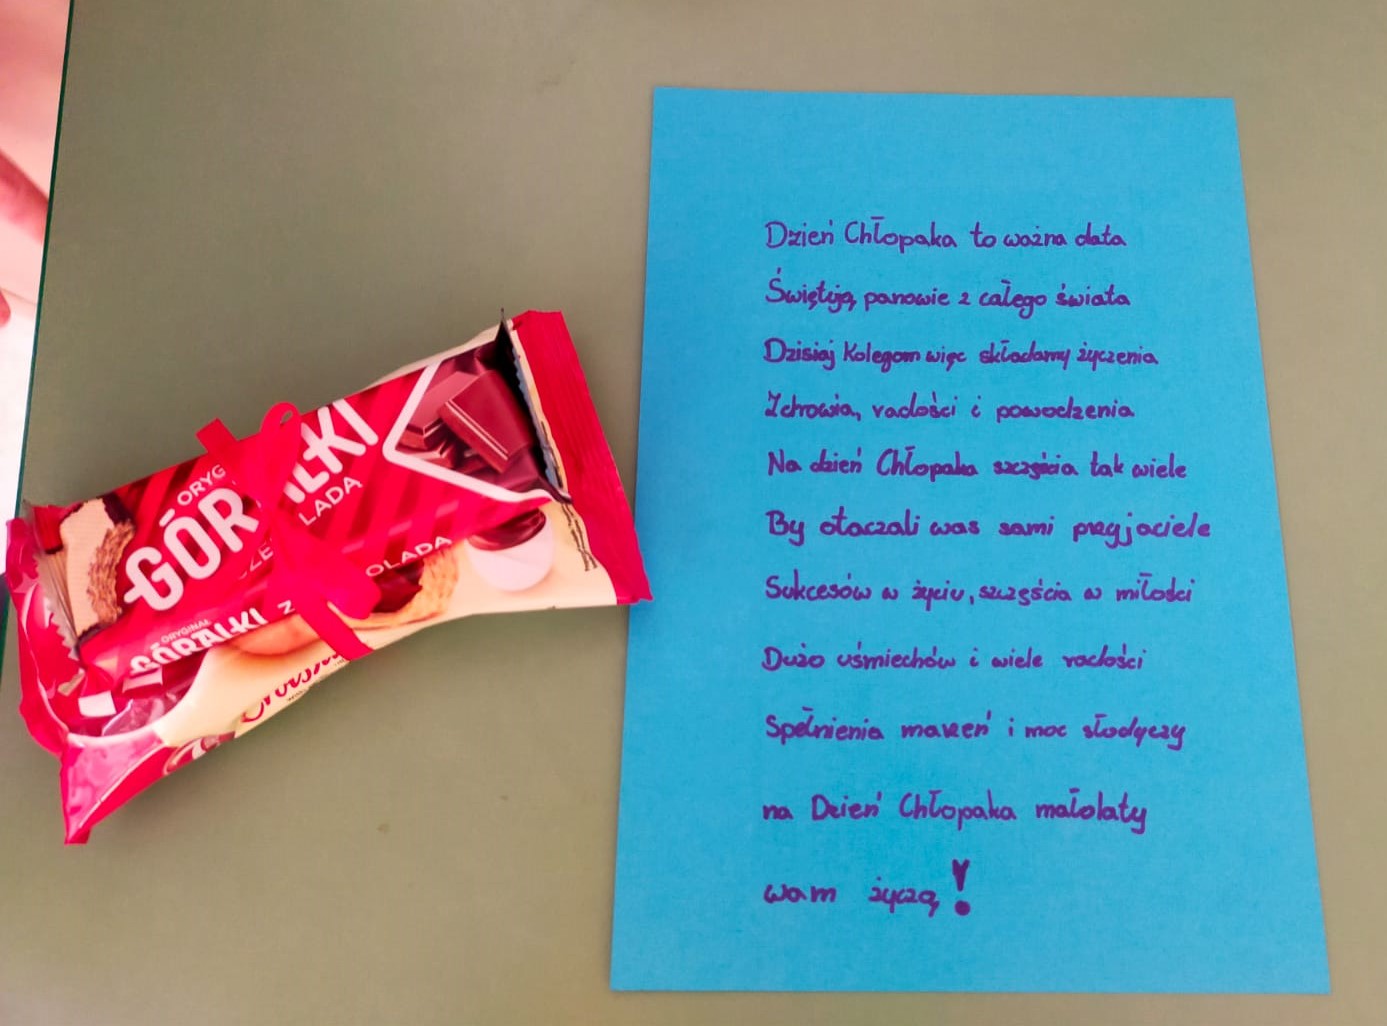 ORYG
GÓR ALKI
CZE LADA
Z OLADA
ORYGINAL
GÓRALKI
Dzień Chłopaka to ważna data
Świętują panowie z całego świata
Dzisiaj Kolegom więc składamy życzenia
Zdrowia, radości i powodzenia
Na dzień Chłopaka szczęścia tak wiele
By otaczali was sami przyjaciele
Sukcesów w życiu, szczęścia w miłości
Dużo uśmiechów i wiele radości
Spełnienia marzeń i moc słodyczy
na Dzień Chłopaka małolaty
wam życzą!